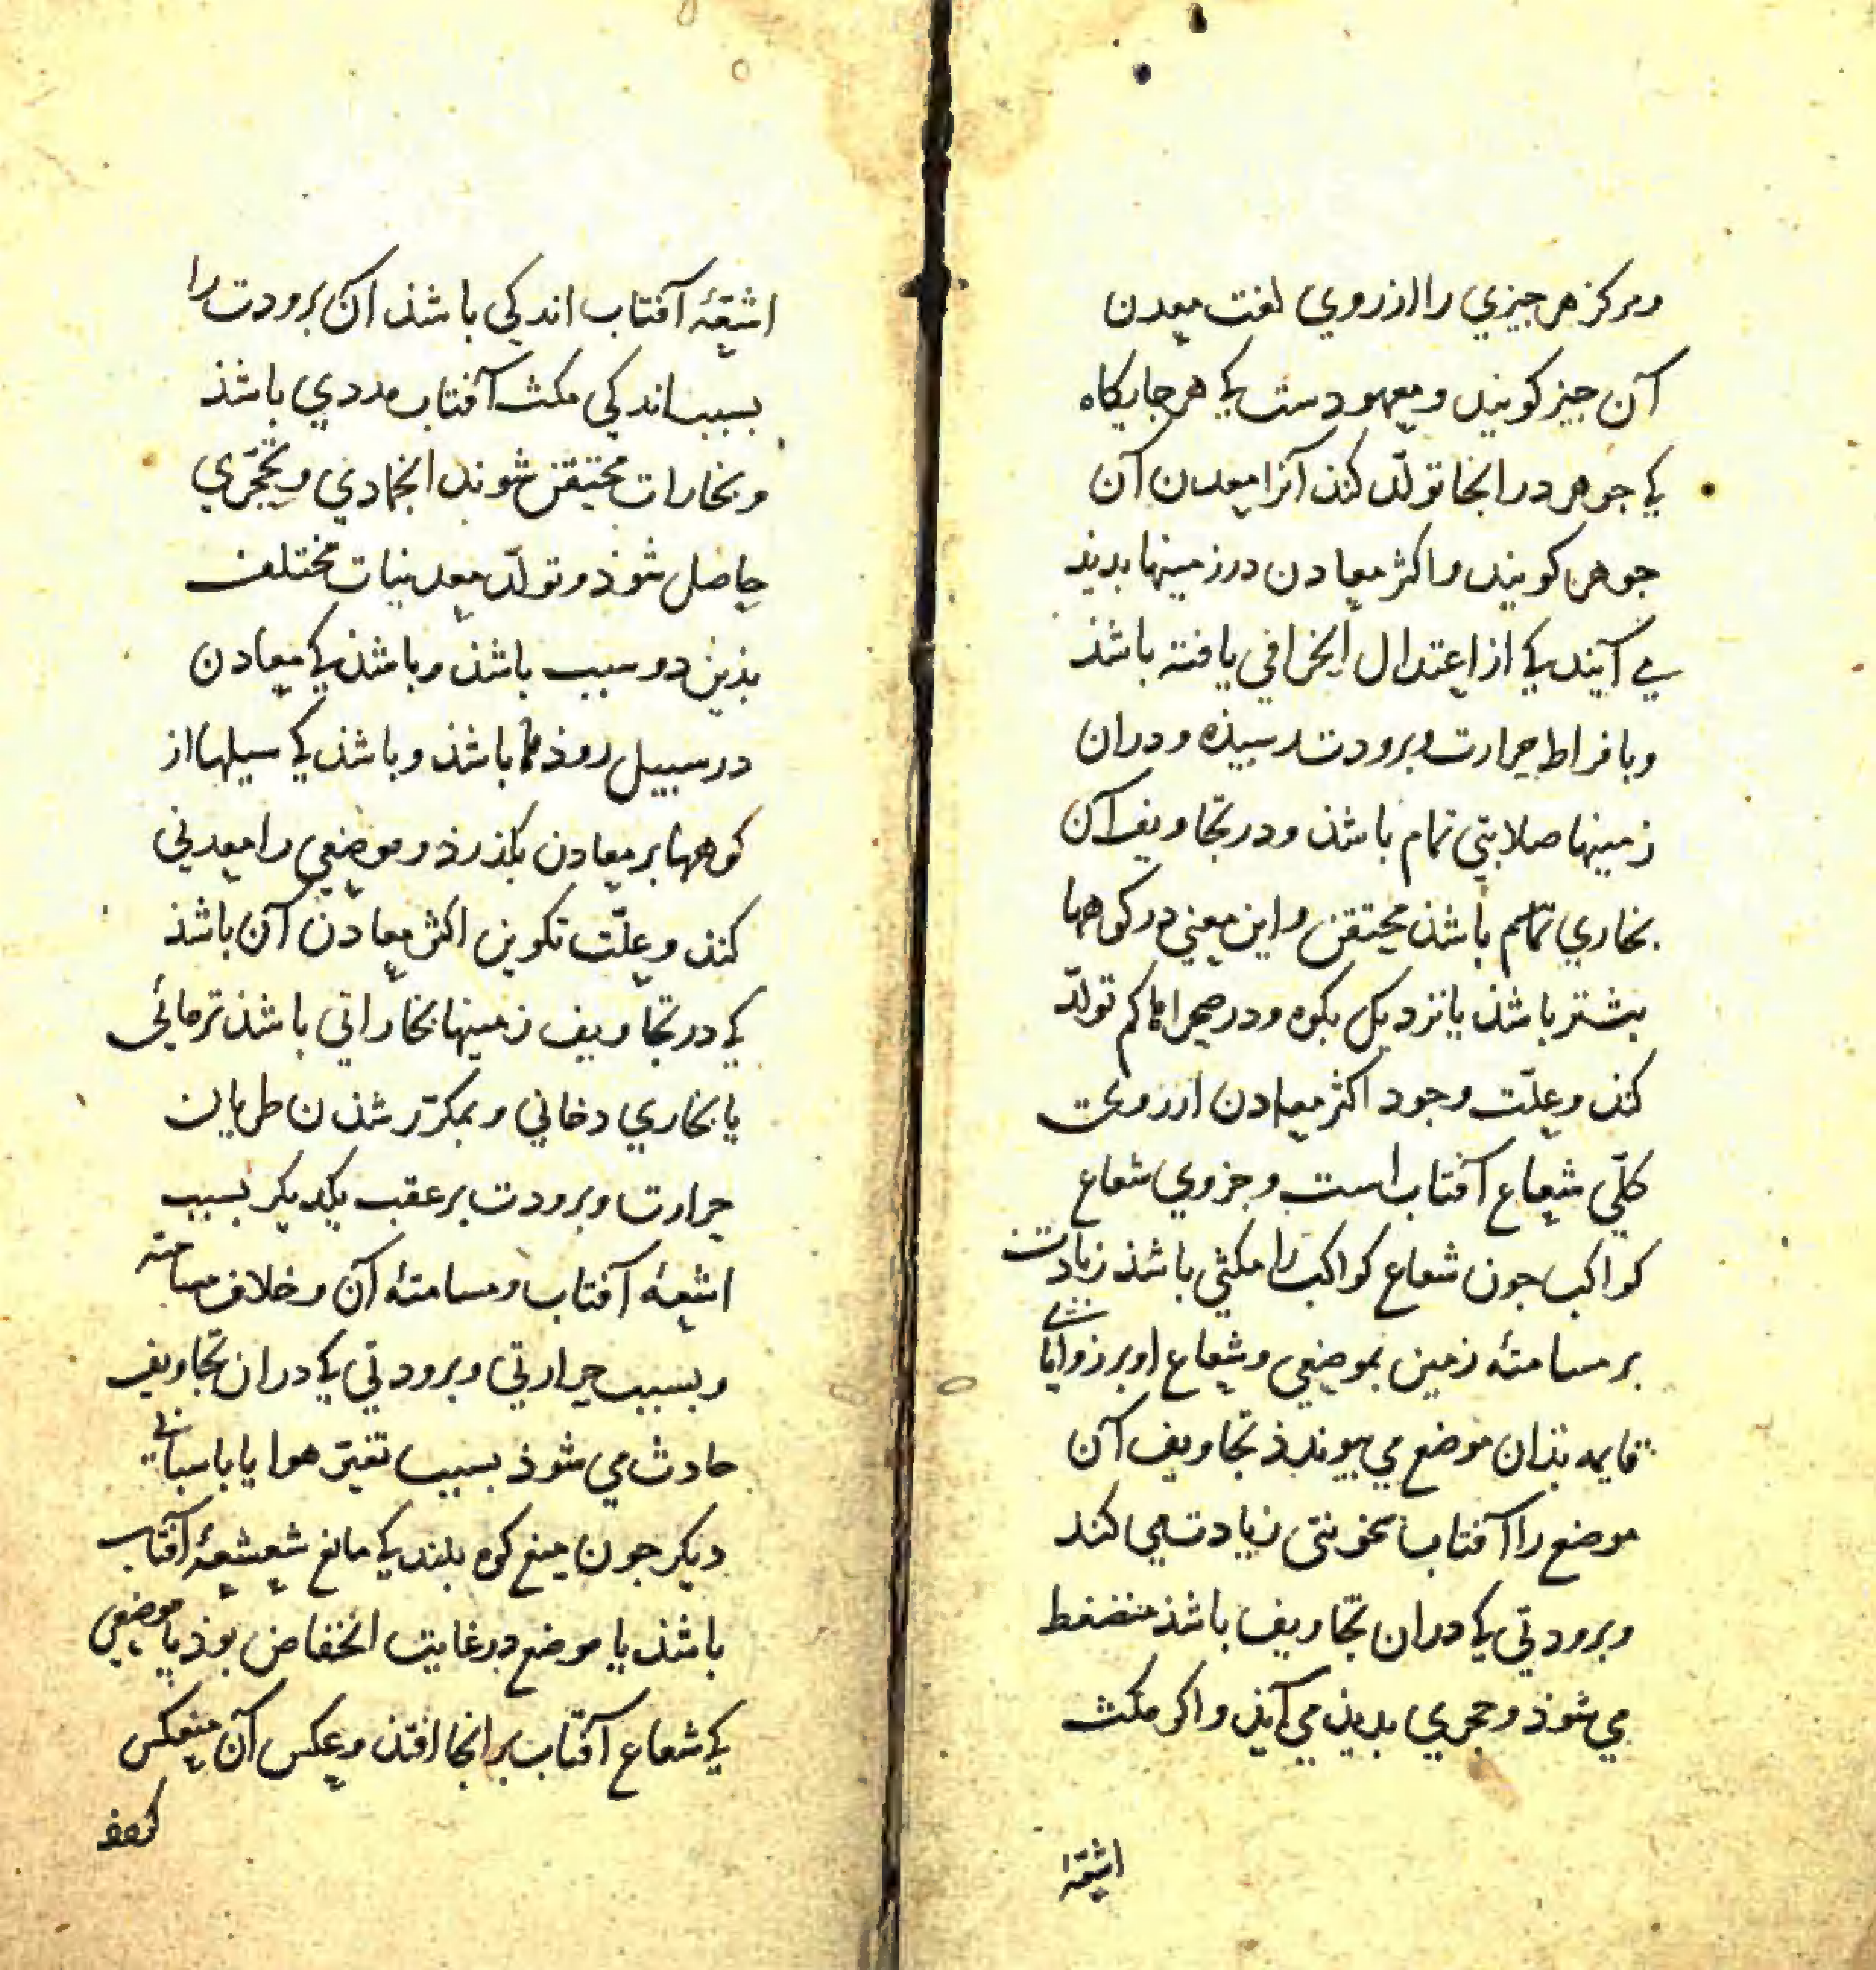 ومرکز هر جیزي را ازروي لغت معدن
آن جیز کویند ومعهودست کی هر جایکاه
کی جوهر درانجا تولّد کند آنرا معدن آن
جوهر کویند واکثر معادن درزمینها بدید
می آیند کی از اعتدال انحرافي یافته باشذ
وبافراط حرارت وبرودت رسیذه ودران
زمینها صلابتی تمام باشذ ودر تجاویف آن
بخاري تمام باشذ محتقن واین معني در کوهها
بیشتر باشذ یا نزدیک بکوه ودر صحراها کم تولّد
کند وعلّت وجود اکثر معادن ازروی
کلّي شعاع آفتاب است وجزوي شعاع
کواکب جون شعاع کواکب را مکثي باشذ زیادت
بر مسامتهٔ زمین بموضعي وشعاع او بر زوایای
قایمه بذان موضع می بیوندذ تجاویف آن
موضع را آفتاب سخونتی زیادت می کند
وبرودتي کی دران تجاویف باشذ منضغط
می شوذ وحجري بدیذ می آیذ واکر مکث
اشعّهٔ
اشعّهٔ آفتاب اندکی باشذ آن برودت را
بسبب اندکی مکث آفتاب مددي باشذ
وبخارات محتقن شوند انجمادي وتحجّري
حاصل شوذ وتولّد معدنیات مختلف
بذین دو سبب باشذ وباشذ کی معادن
درسبیل روذها باشذ وباشذ کی سیلها از
کوهها بر معادن بکذرذ وموضعي را معدنی
کند وعلّت تکوین اکثر معادن آن باشذ
کی در تجاویف زمینها بخاراتی باشذ تر مائی
یا بخاري دخاني وبمکرّر شذن طریان
حرارت وبرودت بر عقب یکدیکر بسبب
اشعهٔ آفتاب ومسامتهٔ آن وخلاف مسامته
وبسبب حرارتي وبرودتي کی دران تجاویف
حادث می شوذ بسبب تغیّر هوا یا باسبابی
دیکر جون میغ کوه بلند کی مانع شعشعهٔ آفتاب
باشذ یا موضع درغایت انخفاض بوذ یا موضعی
کی شعاع آفتاب برانجا افتذ وعکس آن منعکس